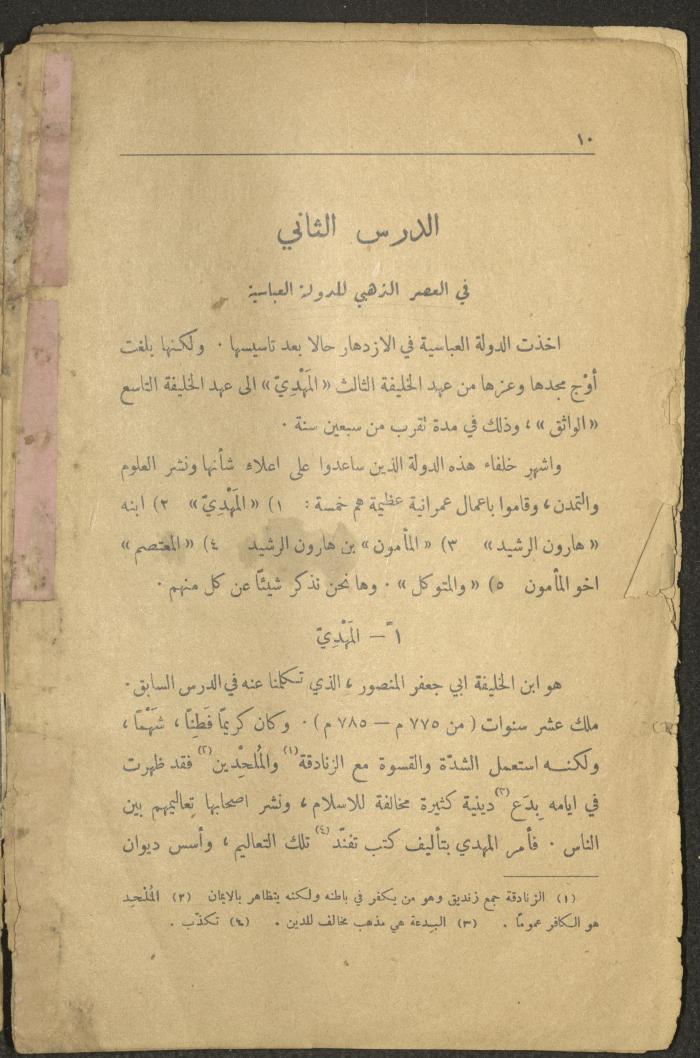 ١٠
الدرس الثاني
في العصر الذهبي للدولة العباسية
اخذت الدولة العباسية في الازدهار حالا بعد تاسيسها . ولكنها بلغت
أوْج مجدها وعزها من عهد الخليفة الثالث « المَهْدِيّ » الى عهد الخليفة التاسع
« الواثق » ، وذلك في مدة تقرب من سبعين سنة .
واشهر خلفاء هذه الدولة الذين ساعدوا على اعلاء شأنها ونشر العلوم
والتمدن ، وقاموا باعمال عمرانية عظيمة هم خمسة : ١) « المَهْدِيّ » ٢) ابنه
« هارون الرشيد » ٣) « المأمون » بن هارون الرشيد ٤) « المعتصم »
اخو المأمون ٥) « والمتوكل » . وها نحن نذكر شيئًا عن كل منهم .
١ً – المَهْدِيّ
هو ابن الخليفة ابي جعفر المنصور ، الذي تكلمنا عنه في الدرس السابق .
ملك عشر سنوات ( من ٧٧٥ م – ٧٨٥ م ) . وكان كريمًا فَطِنًا ، شَهْمًا ،
ولكنه استعمل الشدّة والقسوة مع الزنادقة (١) والمُلحْدِين (٢) فقد ظهرت
في ايامه بِدَع (٣) دينية كثيرة مخالفة للاسلام ، ونشر اصحابها تعاليمهم بين
الناس . فأمر المهدي بتأليف كتب تفنّد (٤) تلك التعاليم ، وأسس ديوان
(١) الزنادقة جمع زنديق وهو من يكفر في باطنه ولكنه يتظاهر بالايمان (٢) المُلْحِد
هو الكافر عمومًا . (٣) البدعة هي مذهب مخالف للدين . (٤) تكذّب .